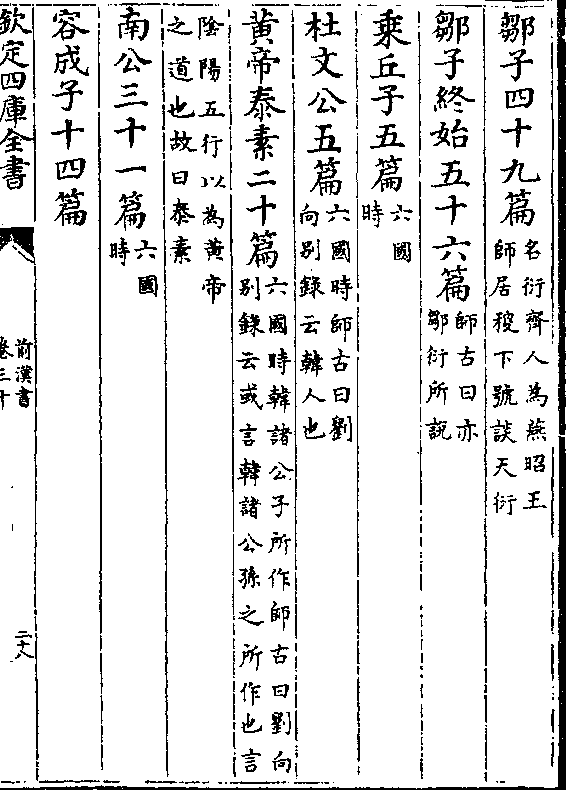 鄒子四十九篇名衍齊人為燕昭王
師居稷下號談天衍
鄒子終始五十六篇師古曰亦
鄒衍所說
乗丘子五篇六國
時
杜文公五篇六國時師古曰劉
向别錄云韓人也
黄帝泰素二十篇六國時韓諸公子所作師古曰劉向
别錄云或言韓諸公孫之所作也言
陰陽五行以為黄帝
之道也故曰泰素
南公三十一篇六國
時
容成子十四篇
欽定四庫全書
前漢書
卷三十
二十八